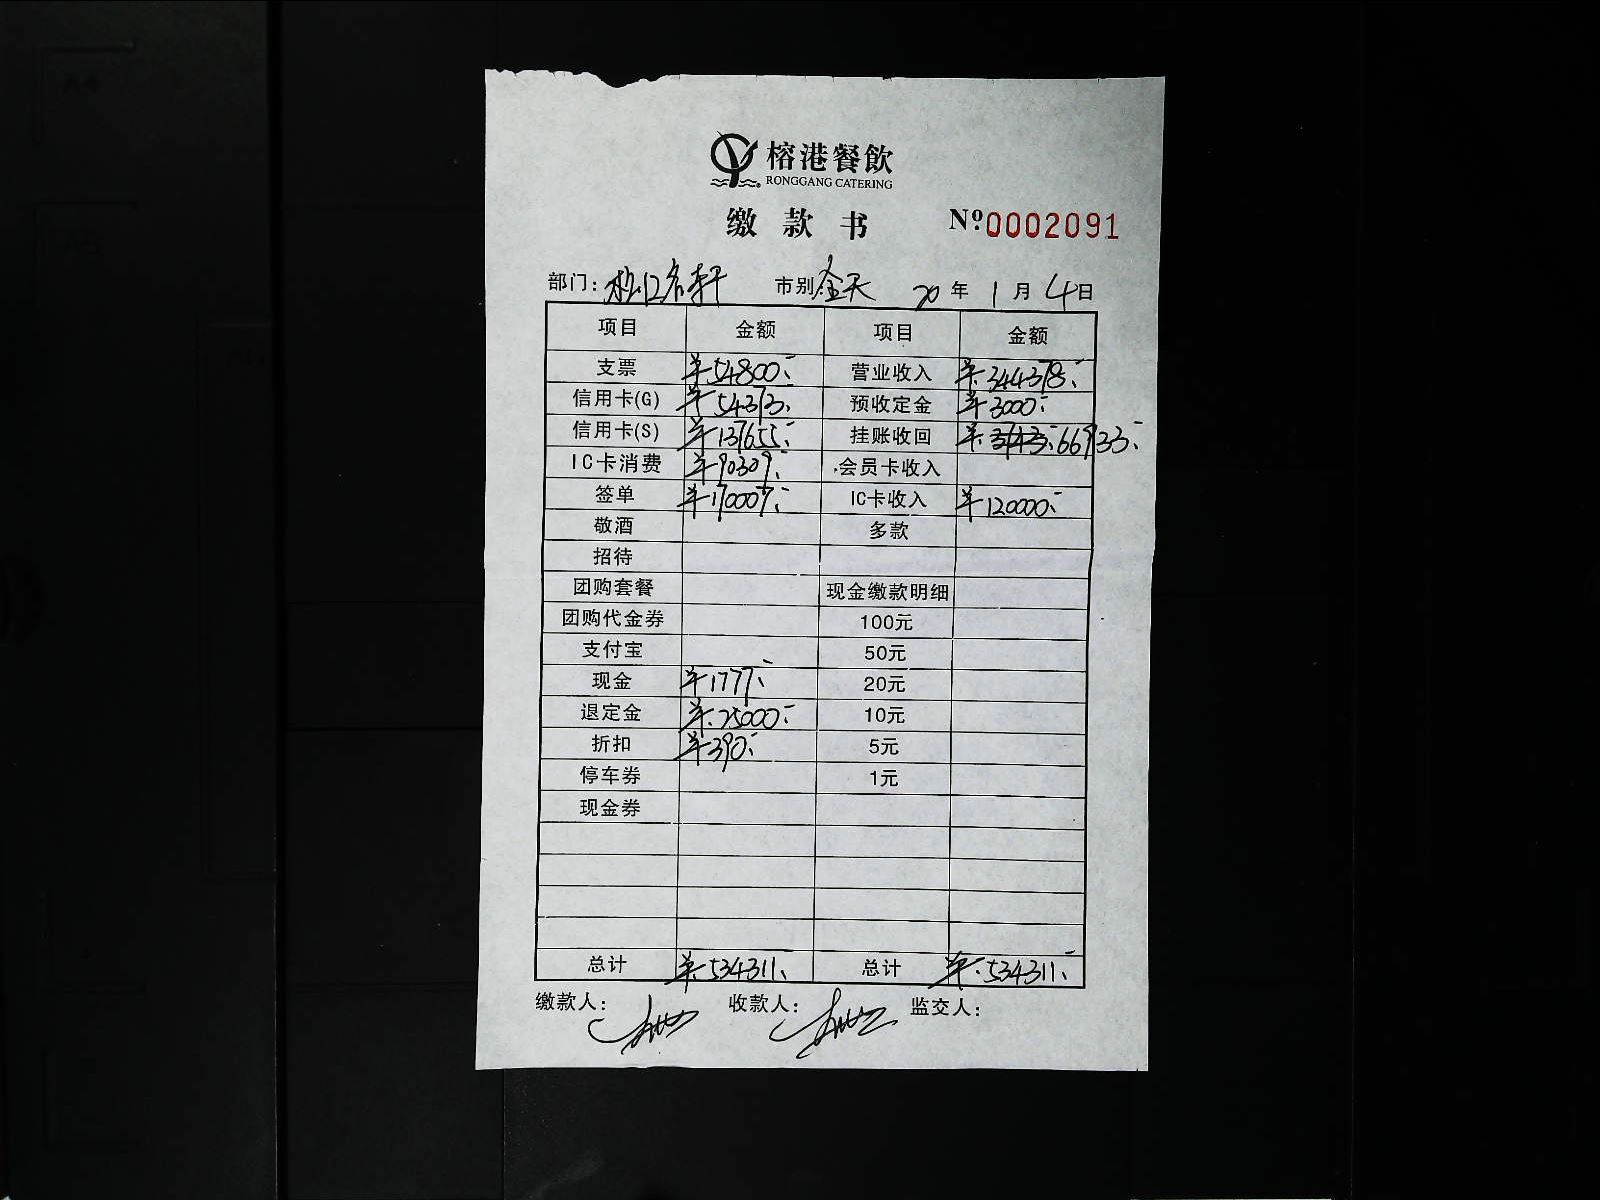 榕港餐飲
RONGGANG CATERING
缴款书 Nº 0002091
部门: 名轩 市别 全天 20年1月4日
项目 金额 项目 金额
支票 ¥54800 营业收入 ¥344378
信用卡(G) ¥54373 预收定金 ¥3000
信用卡(S) ¥137655 挂账收回 ¥66933
IC卡消费 ¥90309 会员卡收入
签单 ¥170007 IC卡收入 ¥120000
敬酒 多款
招待
团购套餐 现金缴款明细
团购代金券 100元
支付宝 50元
现金 ¥1777 20元
退定金 ¥25000 10元
折扣 ¥390 5元
停车券 1元
现金券
总计 ¥534311 总计 ¥534311
缴款人: 收款人: 监交人: